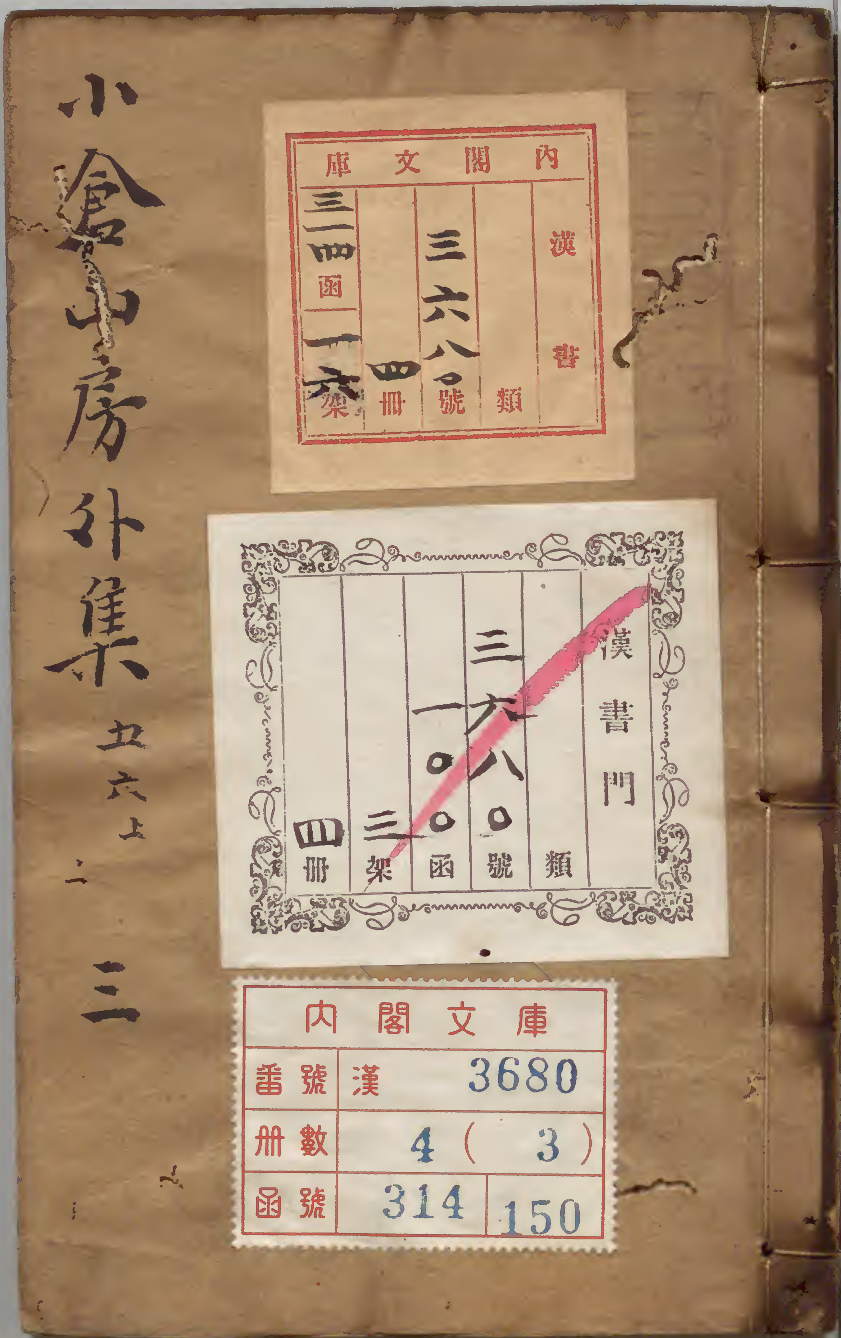 小倉山房外集 五六上二 三
內閣文庫
漢書
類
三六八〇號
四冊
三一四函
一六架
漢書門
類
三六八〇號
一〇〇函
三架
四冊
内閣文庫
番號 漢 3680
冊數 4 ( 3 )
函號 314 150